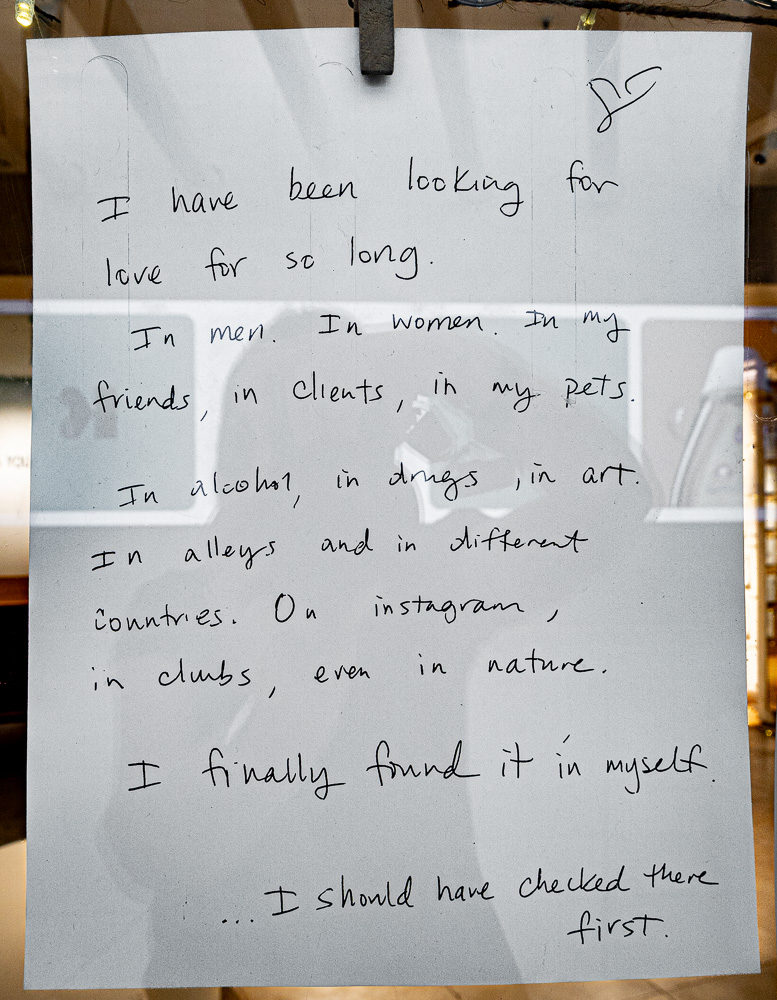 I have been looking for
love for so long.
In men. In women. In my
friends, in clients, in my pets.
In alcohol, in drugs, in art.
In alleys and in different
countries. On instagram,
in clubs, even in nature.
I finally found it in myself.
...I should have checked there
first.